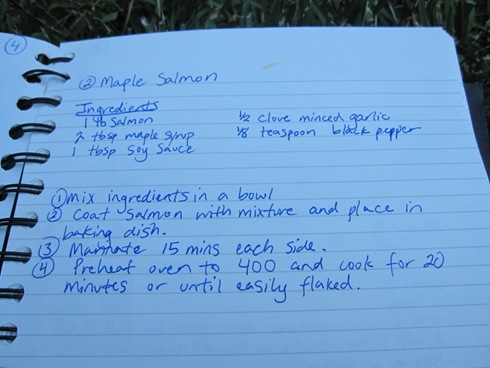 4
② Maple Salmon
Ingredients
1 lb Salmon
2 tbsp maple syrup
1 tbsp Soy Sauce
1/2 clove minced garlic
1/8 teaspoon black pepper
① Mix ingredients in a bowl
② Coat Salmon with mixture and place in
baking dish.
③ Marinate 15 mins each side.
④ Preheat oven to 400 and cook for 20
minutes or until easily flaked.